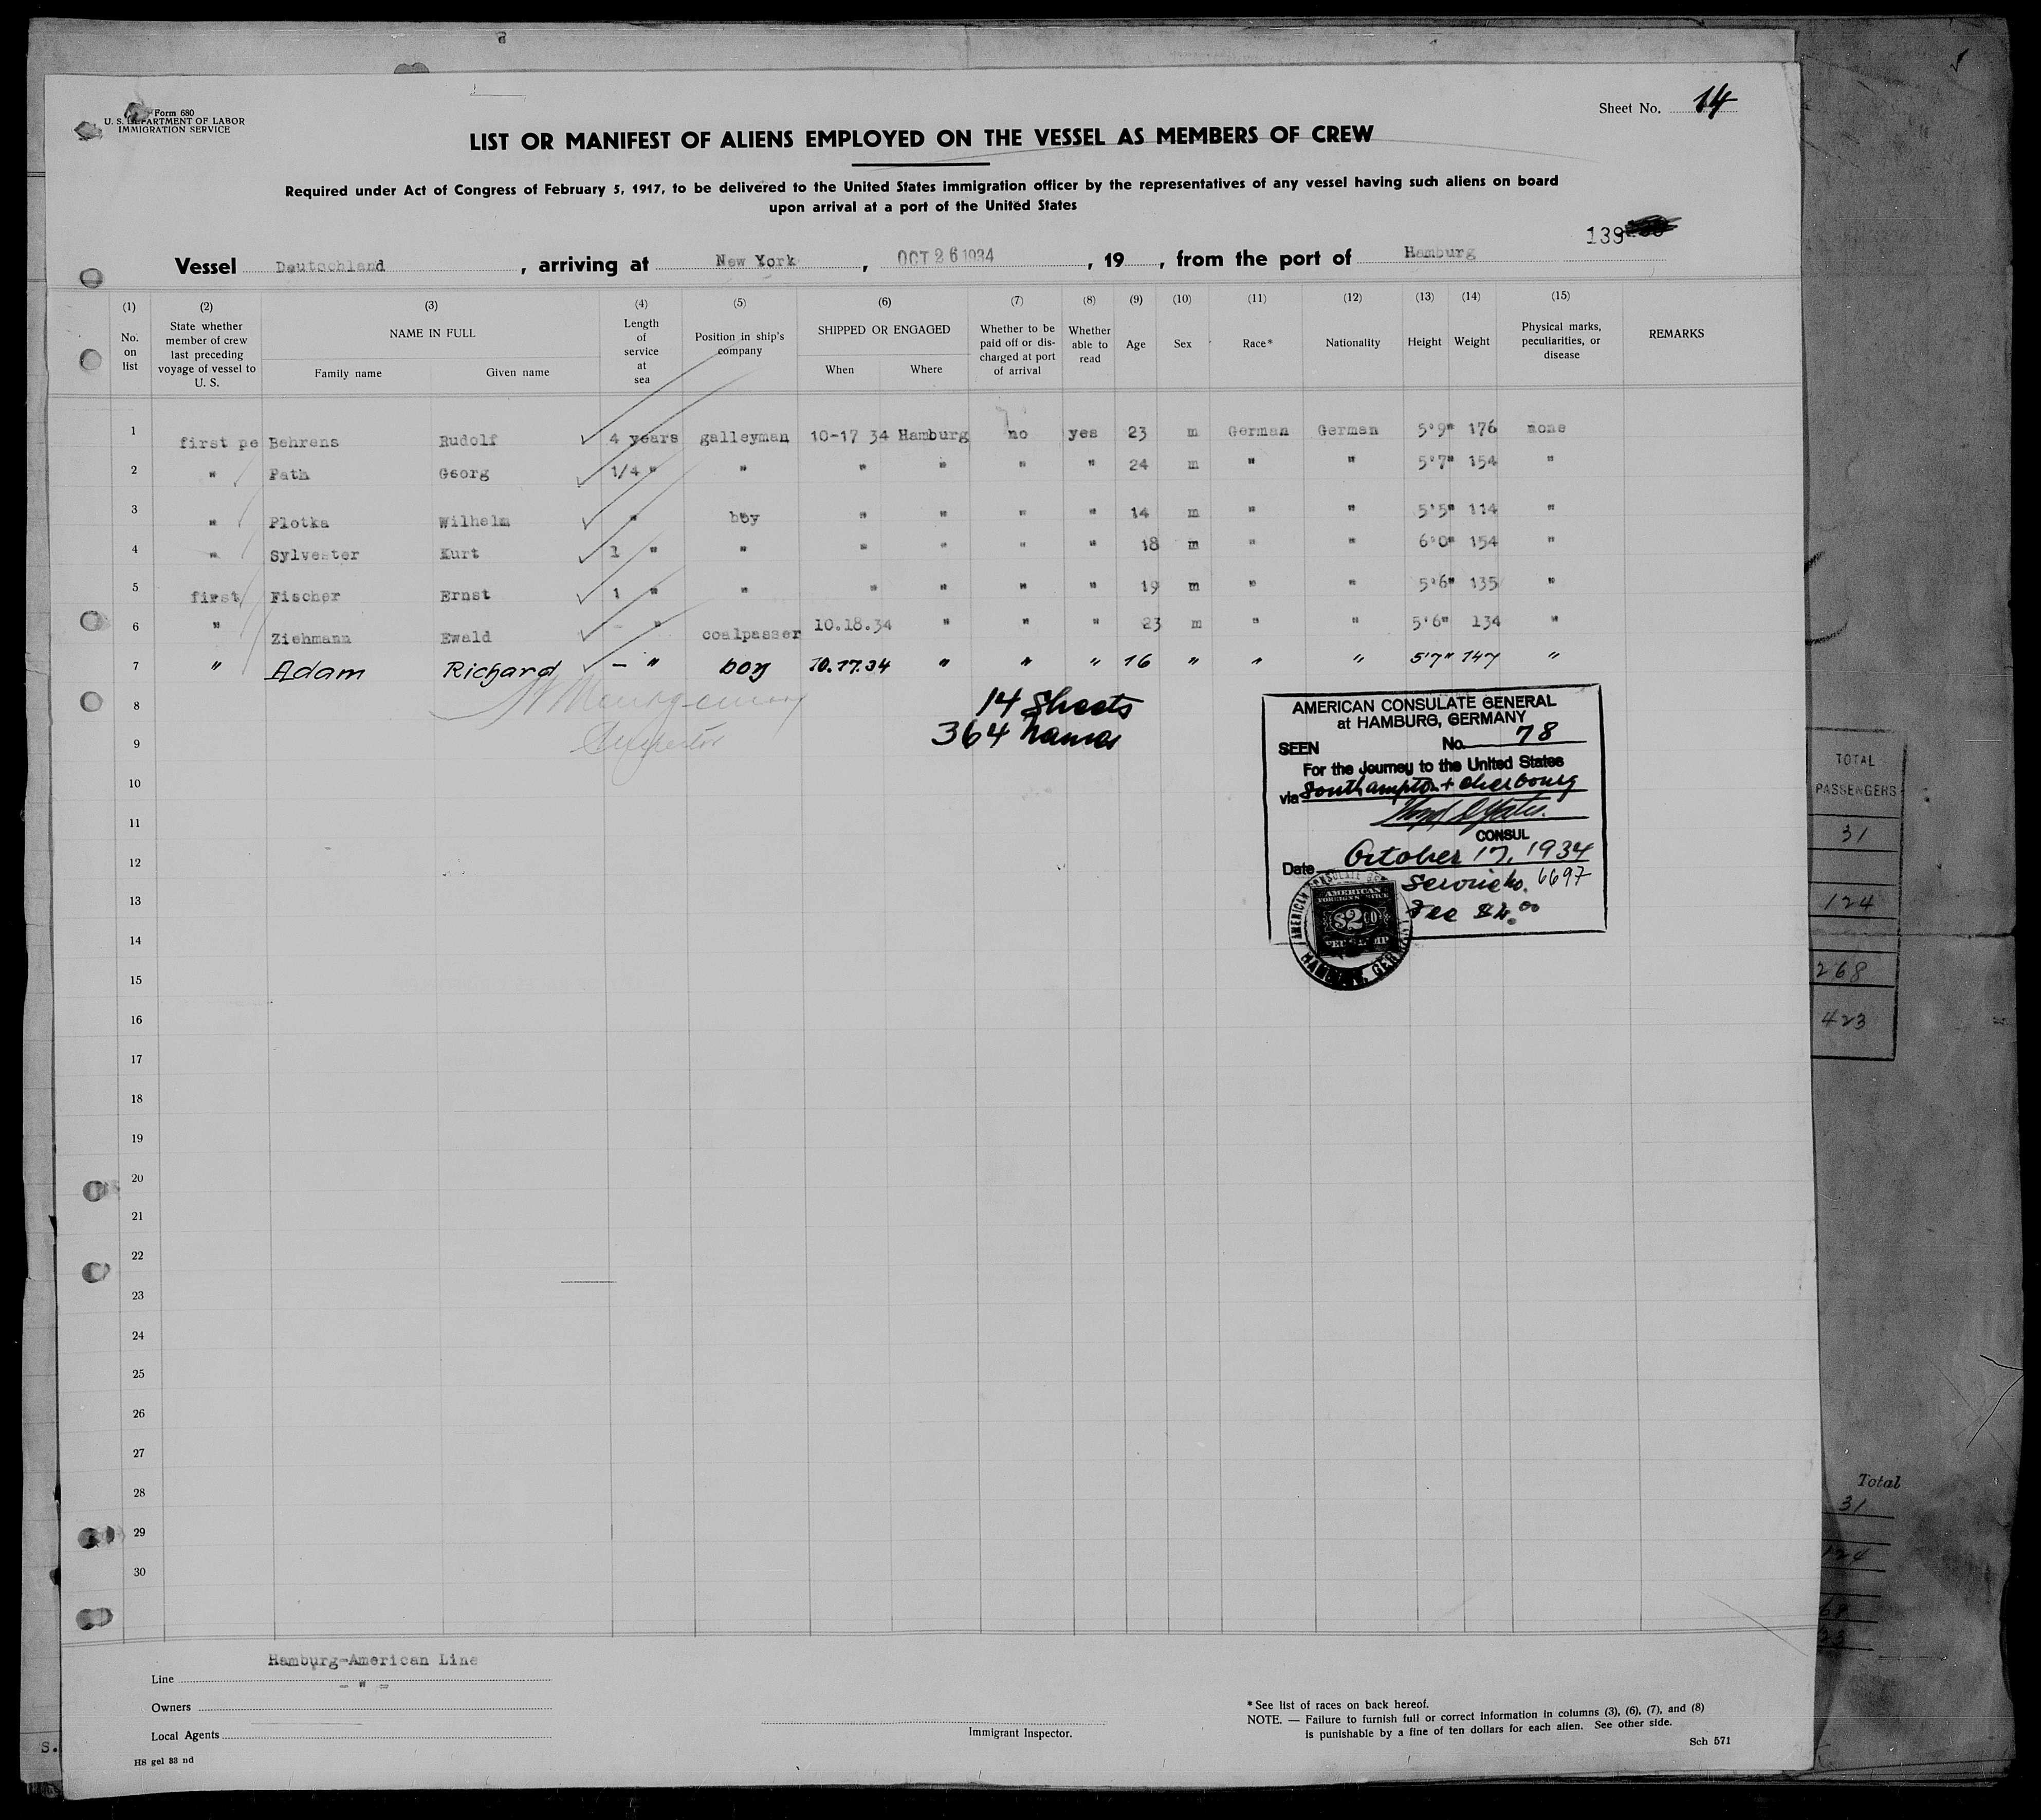 Form 680
U. S. DEPARTMENT OF LABOR
IMMIGRATION SERVICE
Sheet No. 14
LIST OR MANIFEST OF ALIENS EMPLOYED ON THE VESSEL AS MEMBERS OF CREW
Required under Act of Congress of February 5, 1917, to be delivered to the United States immigration officer by the representatives of any vessel having such aliens on board
upon arrival at a port of the United States
139
Vessel Deutschland, arriving at New York, OCT 26 1934, 19, from the port of Hamburg
(1) (2) (3) (4) (5) (6) (7) (8) (9) (10) (11) (12) (13) (14) (15)
No. on list
State whether member of crew last preceding voyage of vessel to U. S.
NAME IN FULL
Family name Given name
Length of service at sea
Position in ship's company
SHIPPED OR ENGAGED
When Where
Whether to be paid off or discharged at port of arrival
Whether able to read
Age Sex Race* Nationality Height Weight
Physical marks, peculiarities, or disease
REMARKS
1 first pe Behrens Rudolf 4 years galleyman 10-17 34 Hamburg no yes 23 m German German 5'9" 176 none
2 " Path Georg 1/4 " " " " " " 24 m " " 5'7" 154 "
3 " Plotka Wilhelm " boy " " " " 14 m " " 5'5" 114 "
4 " Sylvester Kurt 1 " " " " " " 18 m " " 6'0" 154 "
5 first Fischer Ernst 1 " " " " " " 19 m " " 5'6" 135 "
6 " Ziehmann Ewald " coalpasser 10.18.34 " " " 23 m " " 5'6" 134 "
7 " Adam Richard – " boy 10.17.34 " " " 16 " " " 5'7" 147 "
8 14 Sheets
9 364 names
10
11
12
13
14
15
16
17
18
19
20
21
22
23
24
25
26
27
28
29
30
AMERICAN CONSULATE GENERAL
at HAMBURG, GERMANY
SEEN No. 78
For the Journey to the United States
via Southampton + Cherbourg
CONSUL
Date October 17, 1934
Service No. 6697
Fee $2.00
AMERICAN
FOREIGN SERVICE
$2.00
FEE STAMP
TOTAL
PASSENGERS
31
124
268
423
Total
31
124
68
23
Line Hamburg-American Line
Owners - " -
Local Agents
H8 gel 33 nd
Immigrant Inspector.
* See list of races on back hereof.
NOTE. — Failure to furnish full or correct information in columns (3), (6), (7), and (8)
is punishable by a fine of ten dollars for each alien. See other side.
Sch 571